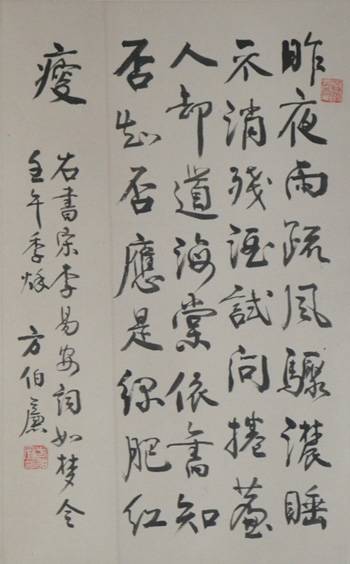 昨夜雨疏風驟濃睡
不消殘酒試問捲簾
人却道海棠依舊知
否知否應是綠肥紅
瘦
右書宋李易安詞如梦令
壬午季秋 方伯廉